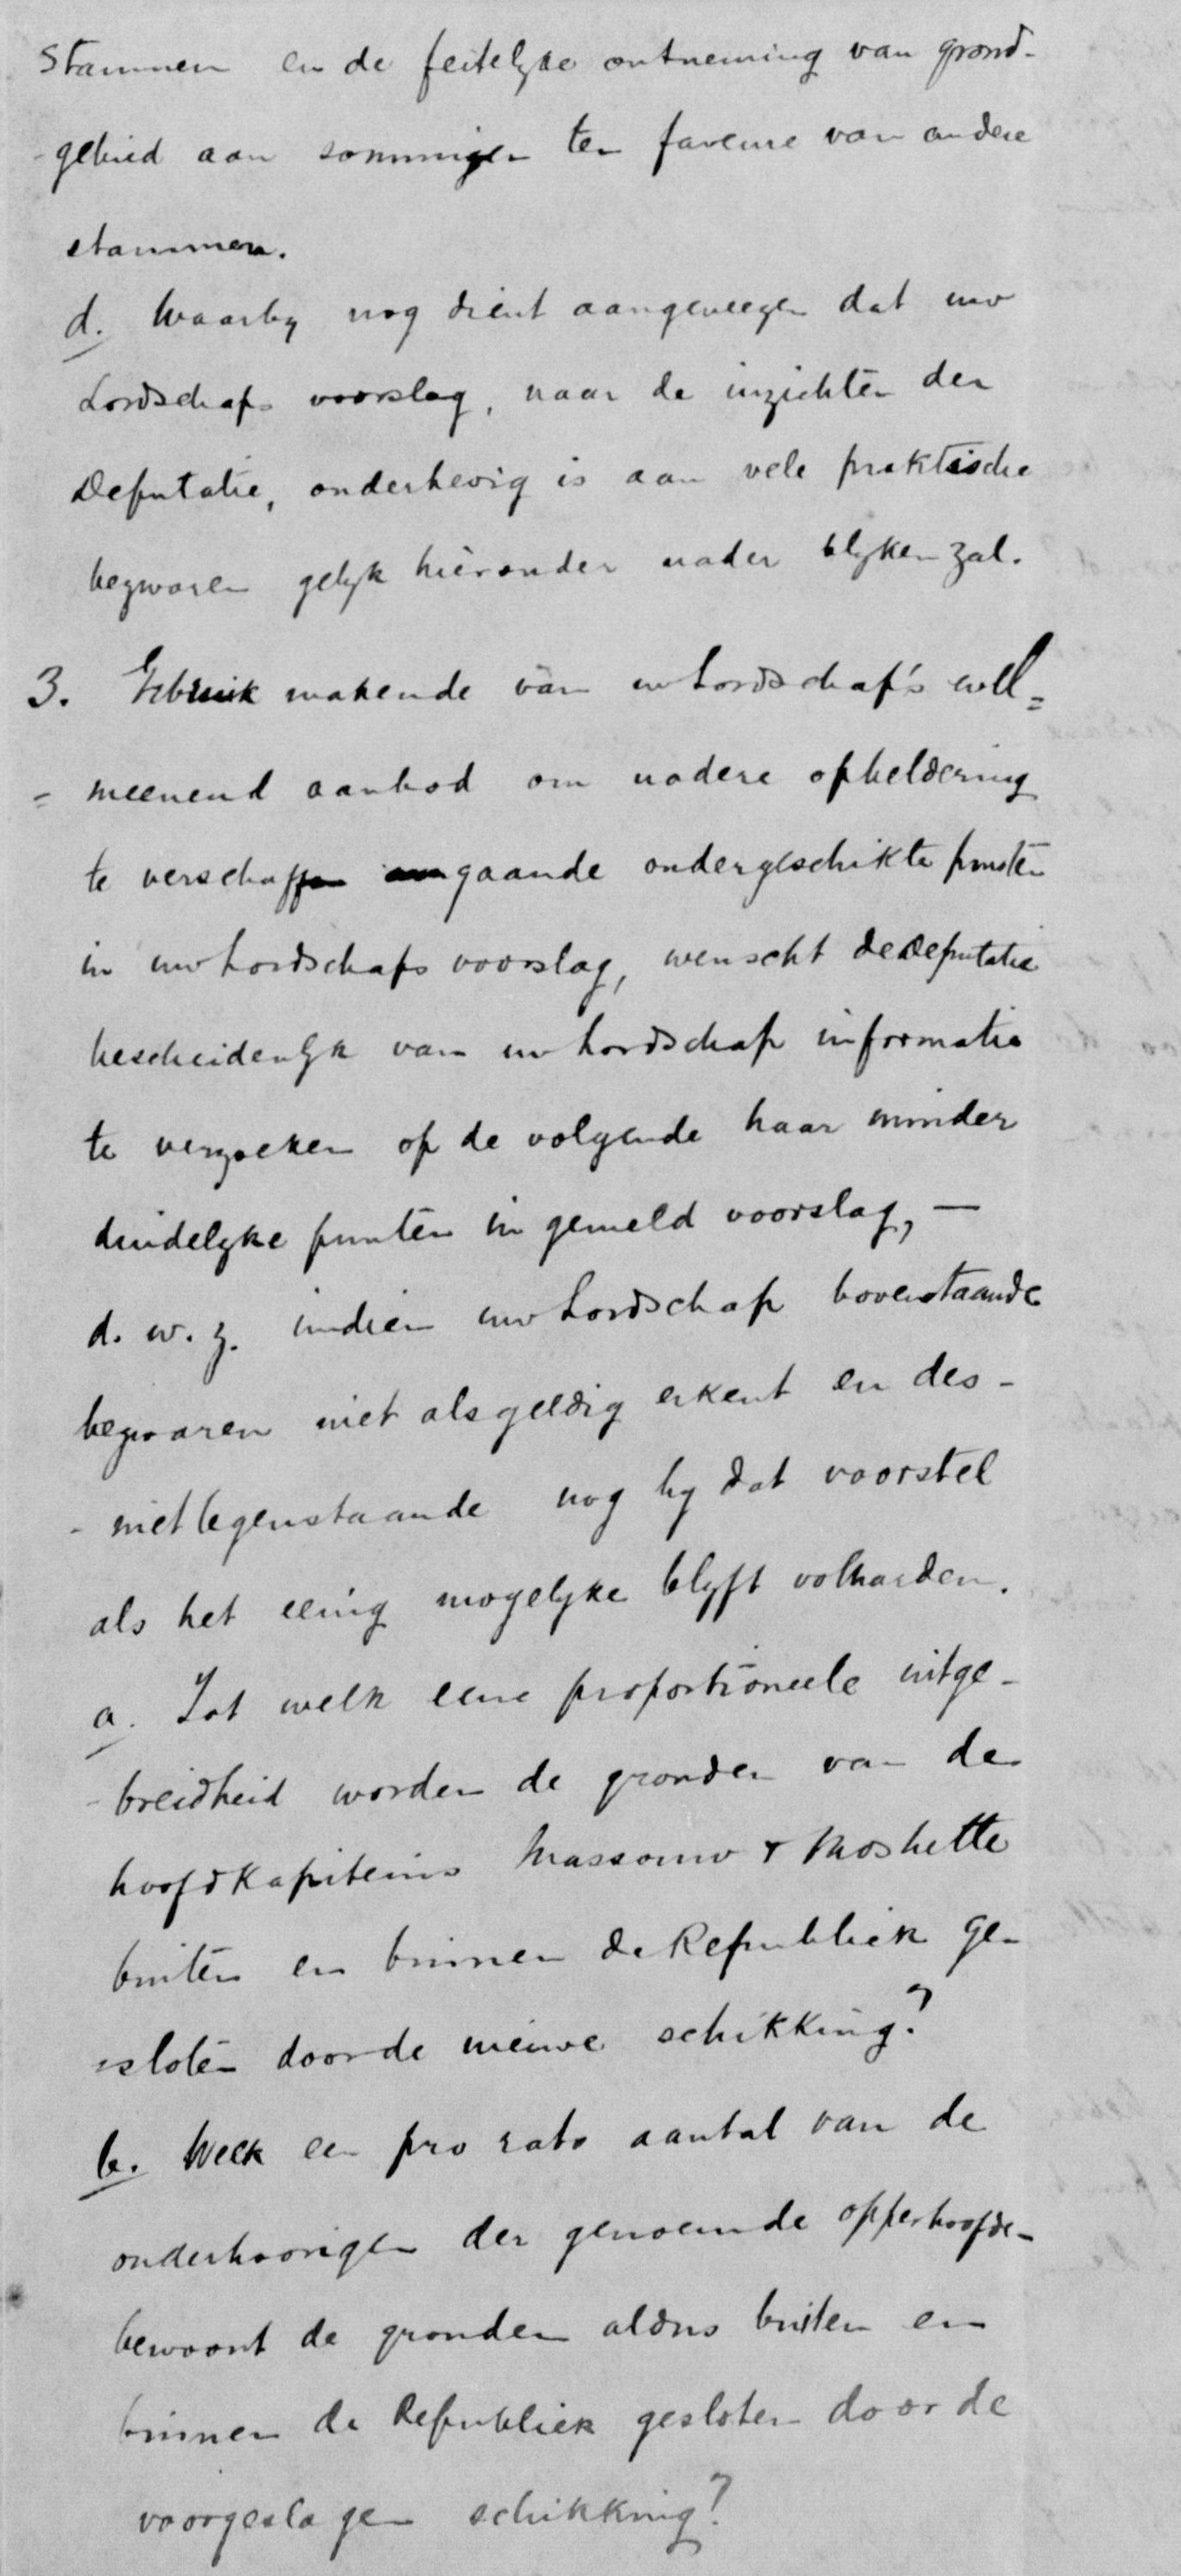 Stammen en de feitelyke ontneming van grond-
-gebied aan sommigen ten faveure van andere
stammen.
d. Waarby nog dient aangeweezen dat uw
Lordschaps voorslag, naar de inzichten der
Deputatie, onderhevig is aan vele praktische
bezwaren gelyk hieronder nader blyken zal.
3. Gebruik makende van uw Lordschap's well=
= meenend aanbod om nadere opheldering
te verschaffen aangaande ondergeschikte punten
in uw Lordschaps voorslag, wenscht de Deputatie
bescheidenlyk van uw Lordschap informatie
te verzoeken op de volgende haar minder
duidelyke punten in gemeld voorslag, —
d. w. z. indien uw Lordschap bovenstaande
bezwaren niet als geldig erkent en des-
- niettegenstaande nog by dat voorstel
als het eenig mogelyke blyft volharden.
a. Tot welk eene proportioneele uitge-
- breidheid worden de gronden van de
hoofdkapiteins Massouw & Moshette
buiten en binnen de Republiek ge-
=sloten door de nieuwe schikking?
b. Welk een pro rato aantal van de
onderhoorigen der genoemde opperhoofden
bewoont de gronden aldus buiten en
binnen de Republiek gesloten door de
voorgeslagen schikking?